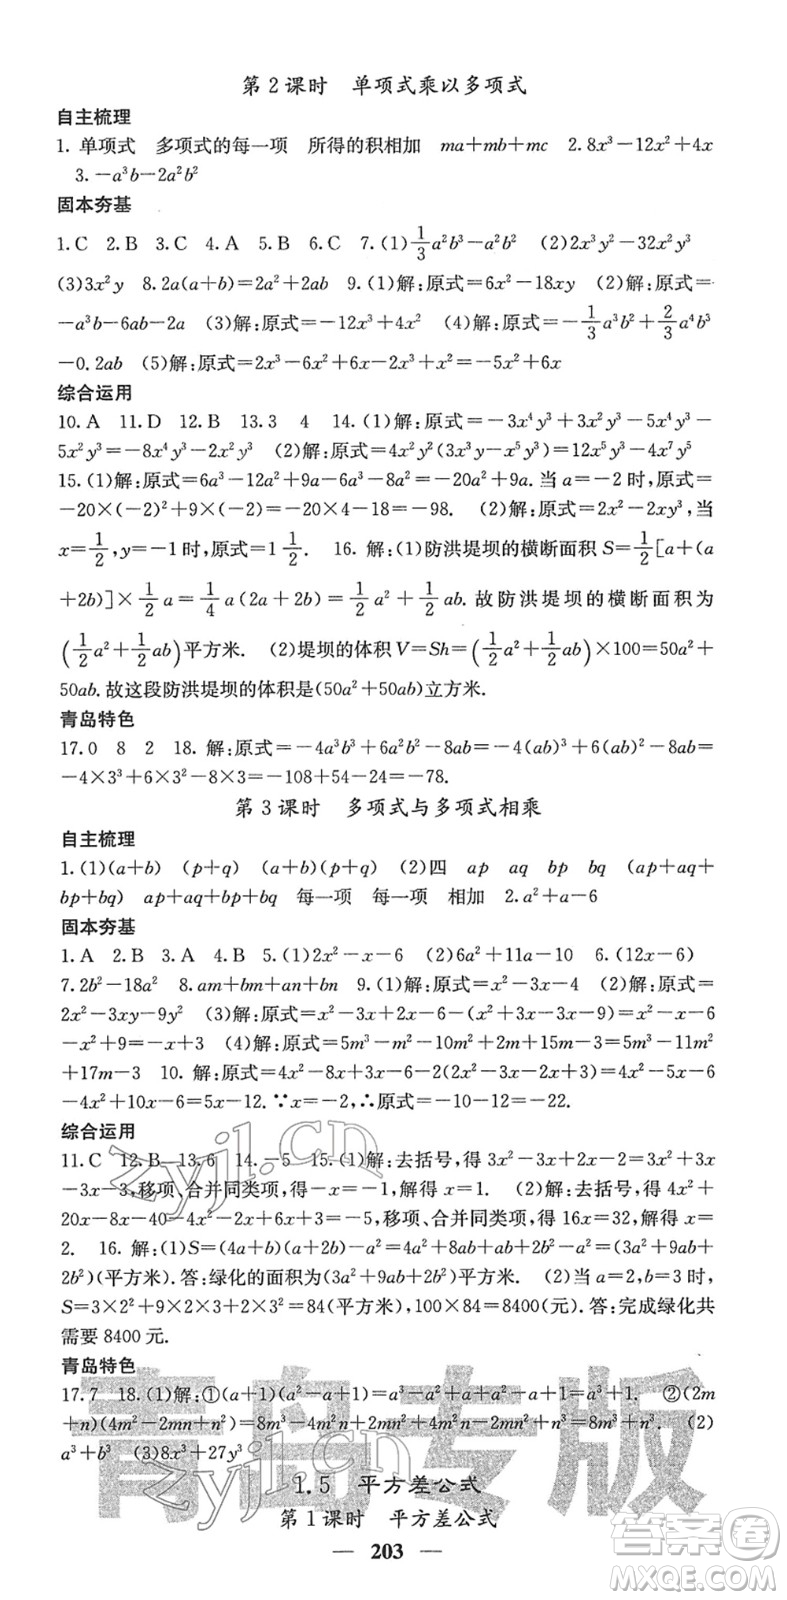 第2课时　单项式乘以多项式
自主梳理
1. 单项式　多项式的每一项　所得的积相加　ma＋mb＋mc　2. 8x³－12x²＋4x
3. －a³b－2a²b²
固本夯基
1. C　2. B　3. C　4. A　5. B　6. C　7. (1)1/3a²b³－a²b²　(2)2x³y－32x²y³
(3)3x²y　8. 2a(a＋b)＝2a²＋2ab　9. (1)解:原式＝6x²－18xy　(2)解:原式＝
－a³b－6ab－2a　(3)解:原式＝－12x³＋4x²　(4)解:原式＝－1/3a³b²＋2/3a⁴b³
－0.2ab　(5)解:原式＝2x³－6x²＋6x－2x³＋x²＝－5x²＋6x
综合运用
10. A　11. D　12. B　13. 3　4　14. (1)解:原式＝－3x⁴y³＋3x²y³－5x⁴y³－
5x²y³＝－8x⁴y³－2x²y³　(2)解:原式＝4x²y²(3x³y－x⁵y³)＝12x⁵y³－4x⁷y⁵
15. (1)解:原式＝6a³－12a²＋9a－6a³－8a²＝－20a²＋9a. 当a＝－2时,原式＝
－20×(－2)²＋9×(－2)＝－20×4－18＝－98.　(2)解:原式＝2x²－2xy³,当
x＝1/2,y＝－1时,原式＝1 1/2.　16. 解:(1)防洪堤坝的横断面积S＝1/2[a＋(a
＋2b)]×1/2a＝1/4a(2a＋2b)＝1/2a²＋1/2ab. 故防洪堤坝的横断面积为
(1/2a²＋1/2ab)平方米.　(2)堤坝的体积V＝Sh＝(1/2a²＋1/2ab)×100＝50a²＋
50ab. 故这段防洪堤坝的体积是(50a²＋50ab)立方米.
青岛特色
17. 0　8　2　18. 解:原式＝－4a³b³＋6a²b²－8ab＝－4(ab)³＋6(ab)²－8ab＝
－4×3³＋6×3²－8×3＝－108＋54－24＝－78.
第3课时　多项式与多项式相乘
自主梳理
1. (1)(a＋b)　(p＋q)　(a＋b)(p＋q)　(2)四　ap　aq　bp　bq　(ap＋aq＋
bp＋bq)　ap＋aq＋bp＋bq　每一项　每一项　相加　2. a²＋a－6
固本夯基
1. A　2. B　3. A　4. B　5. (1)2x²－x－6　(2)6a²＋11a－10　6. (12x－6)
7. 2b²－18a²　8. am＋bm＋an＋bn　9. (1)解:原式＝x²－3x－4　(2)解:原式＝
2x²－3xy－9y²　(3)解:原式＝x²－3x＋2x－6－(x²＋3x－3x－9)＝x²－x－6
－x²＋9＝－x＋3　(4)解:原式＝5m³－m²－10m²＋2m＋15m－3＝5m³－11m²＋
17m－3　10. 解:原式＝4x²－8x＋3x－6－4(x²－2x＋5x－10)＝4x²－5x－6
－4x²－12x＋40＝－17x＋34
综合运用
11. C　12. B　13. 6　14. －5　15. (1)解:去括号,得3x²－3x＋2x－2＝3x²＋3x
－3x－3,移项、合并同类项,得－x＝－1,解得x＝1.　(2)解:去括号,得4x²＋
20x－8x－40－4x²＋2x＝－2x－8,移项、合并同类项,得16x＝32,解得x＝
2.　16. 解:(1)S＝(4a＋b)(2a＋2b)－a²
答:绿化的面积为(3a²＋9ab＋2b²)平方米.　(2)当a＝2,b＝3时,
S＝3×2²＋9×2×3＋2×3²＝84(平方米),100×84＝8400(元). 答:完成绿化共
需要8400元.
青岛特色
17. 7　18. (1)解:①(a＋1)(a²－a＋1)＝a³－a²＋a＋a²－a＋1＝a³＋1.　②(2m
＋n)(4m²－2mn＋n²)＝8m³－4m²n＋2mn²＋4m²n－2mn²＋n³＝8m³＋n³.　(2)
a³＋b³　(3)8x³＋27y³
1.5　平方差公式
第1课时　平方差公式
203
青岛专版
zyjl.cn
zyjl.cn
答案圈
MXQE.COM